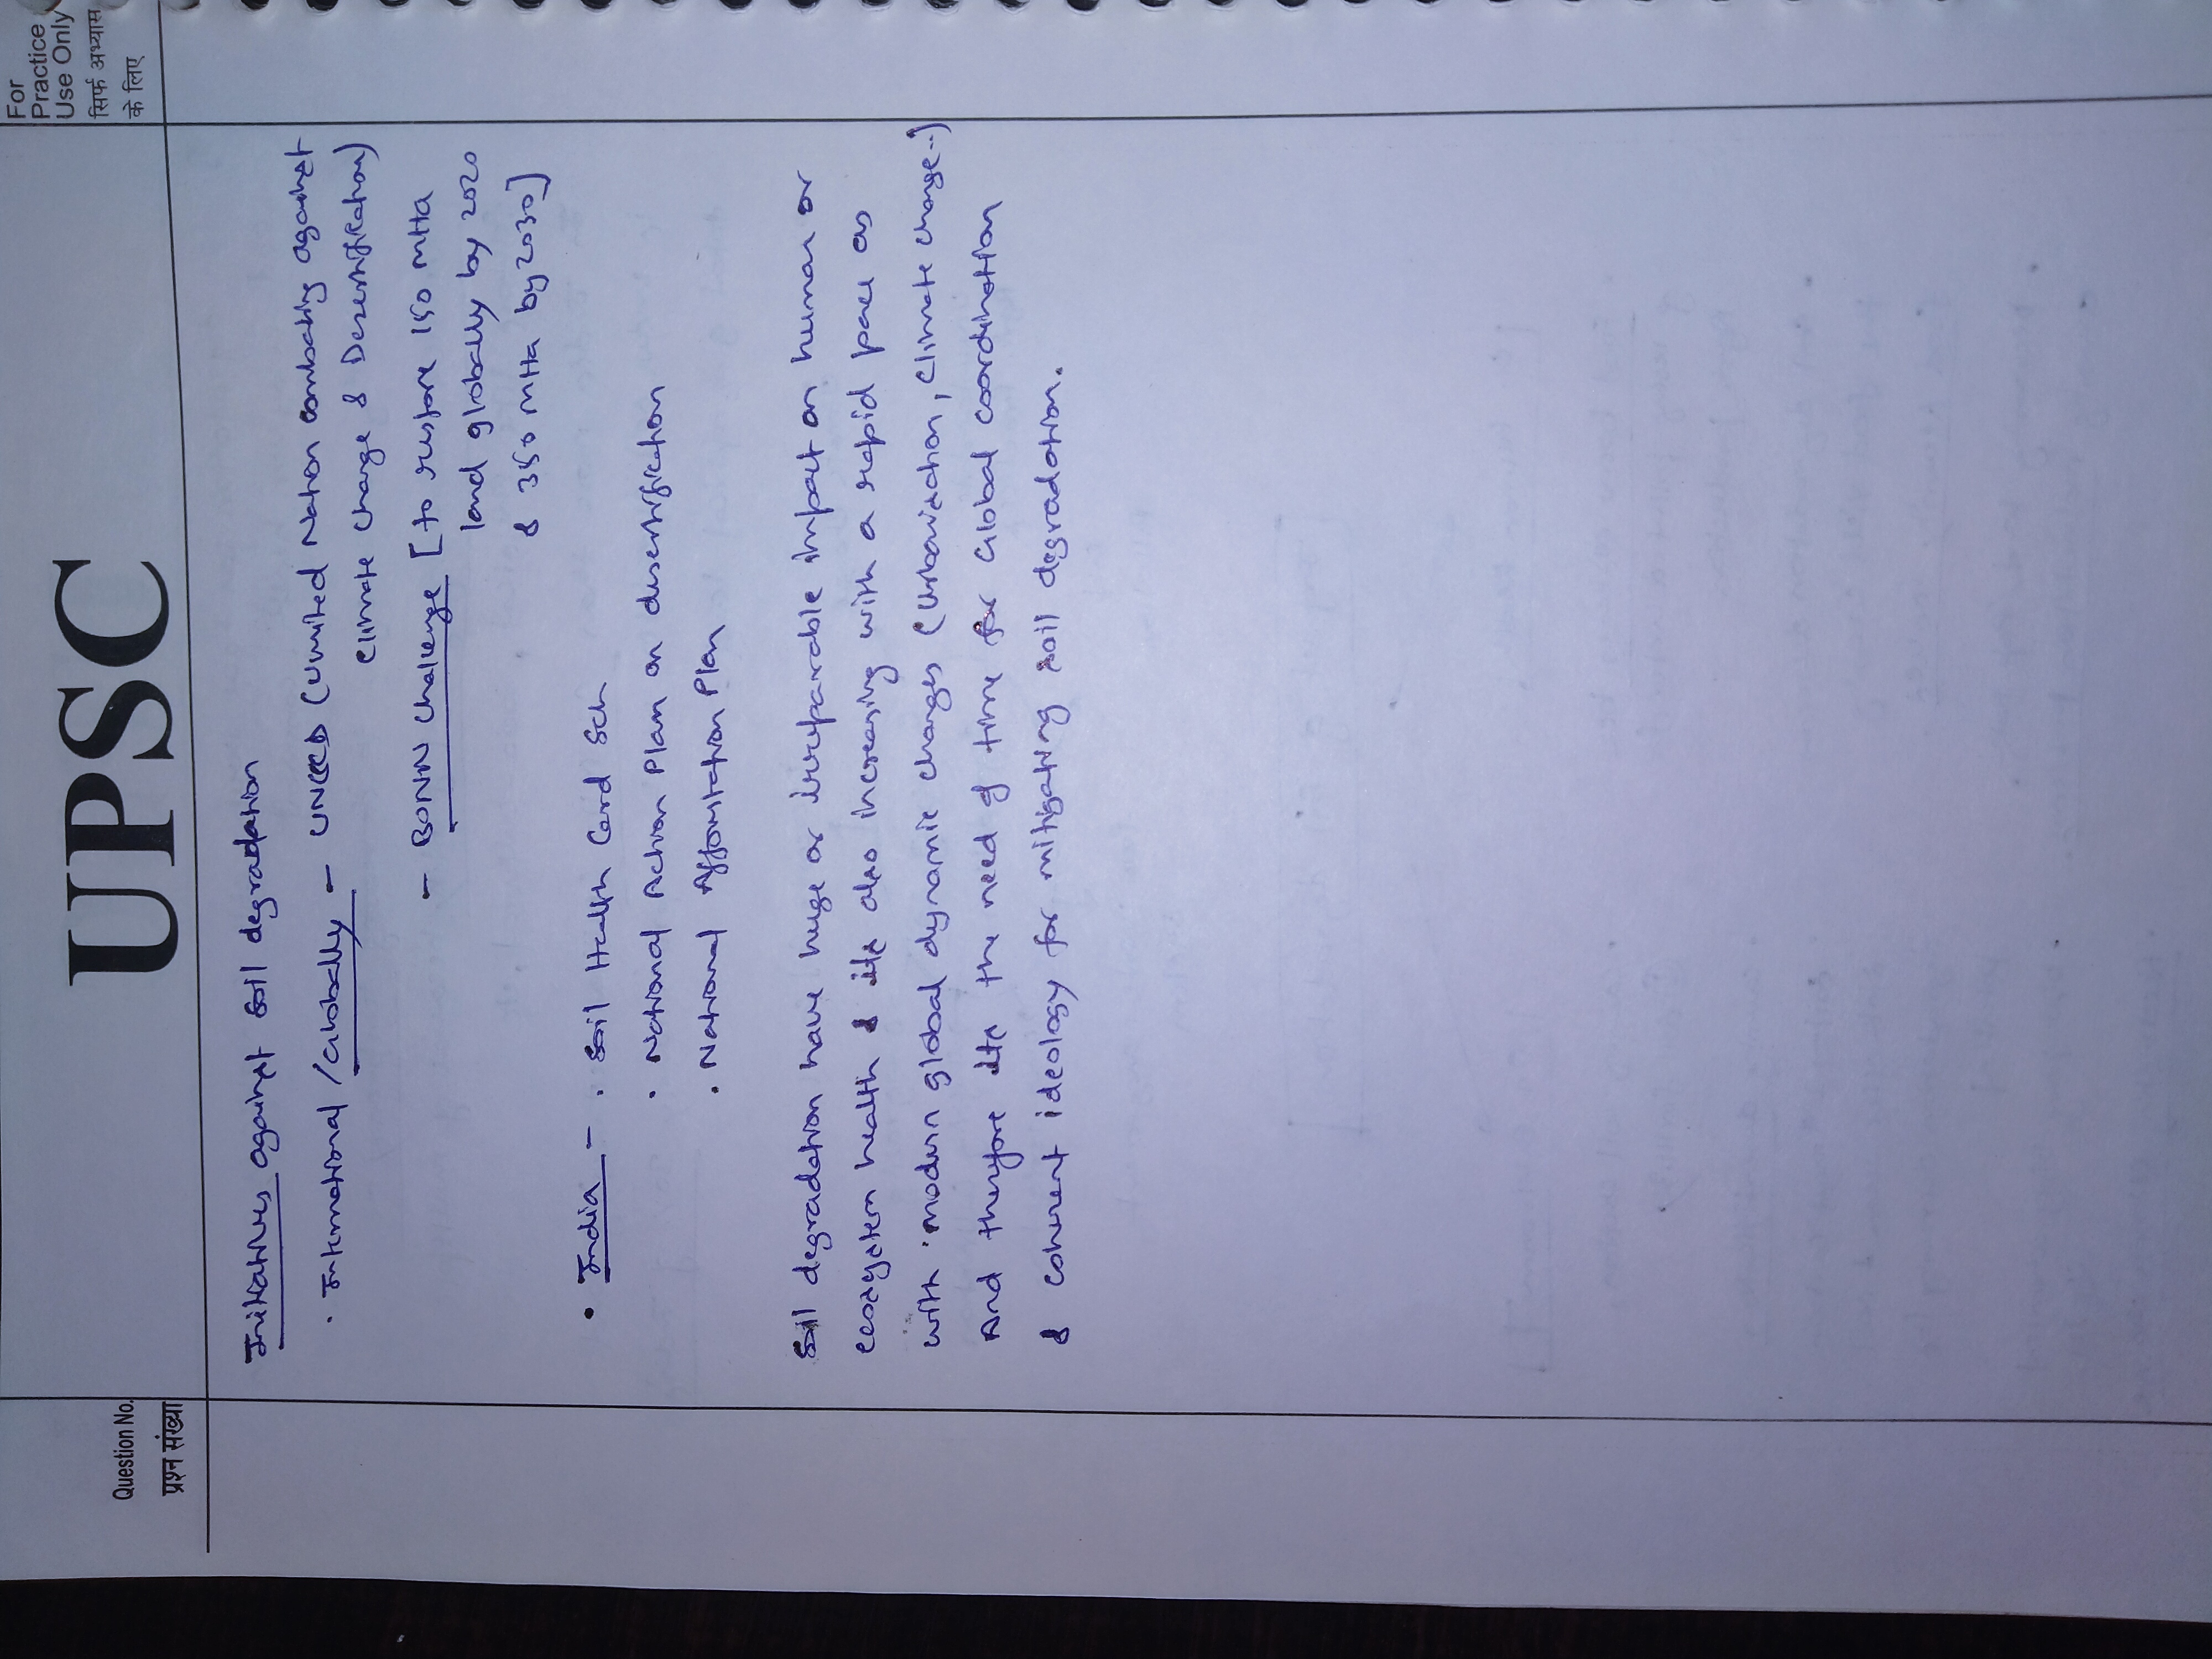 For
Practice
Use Only
सिर्फ अभ्यास
के लिए
UPSC
Question No.
प्रश्न संख्या
Initiatives against Soil degradation
• International / Globally - UNCCD (United Nation combating against
climate change & Desertification)
- BONN Challenge [to restore 150 mHa
land globally by 2020
& 350 mHa by 2030]
• India - • Soil Health Card Sch
• National Action Plan on desertification
• National Afforstation Plan
Soil degradation have huge or irreparable impact on human or
ecosystem health & its also increasing with a rapid pace as
with modern global dynamic changes (Urbanization, climate change..)
And therefore its the need of time for Global coordination
& coherent ideology for mitigating soil degradation.